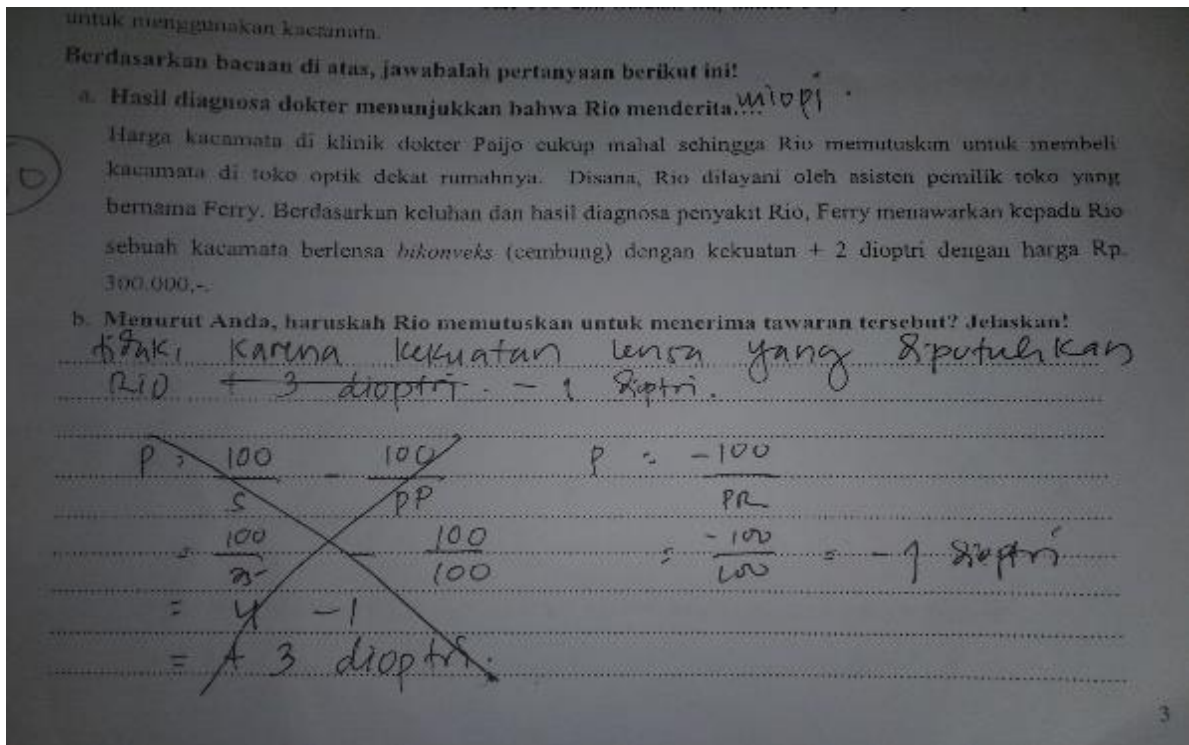 untuk menggunakan kacamata.
Berdasarkan bacaan di atas, jawabalah pertanyaan berikut ini!
a. Hasil diagnosa dokter menunjukkan bahwa Rio menderita.... miopi.
Harga kacamata di klinik dokter Paijo cukup mahal sehingga Rio memutuskan untuk membeli
kacamata di toko optik dekat rumahnya. Disana, Rio dilayani oleh asisten pemilik toko yang
bernama Ferry. Berdasarkan keluhan dan hasil diagnosa penyakit Rio, Ferry menawarkan kepada Rio
sebuah kacamata berlensa bikonveks (cembung) dengan kekuatan + 2 dioptri dengan harga Rp.
300.000,-.
b. Menurut Anda, haruskah Rio memutuskan untuk menerima tawaran tersebut? Jelaskan!
karena kekuatan lensa yang diputuhkan
Rio + 3 dioptri. - 1 dioptri.
P = 100/S - 100/PP
= 100/25 - 100/100
= 4 - 1
= + 3 dioptri.
P = -100/PR
= -100/100 = -1 dioptri
3